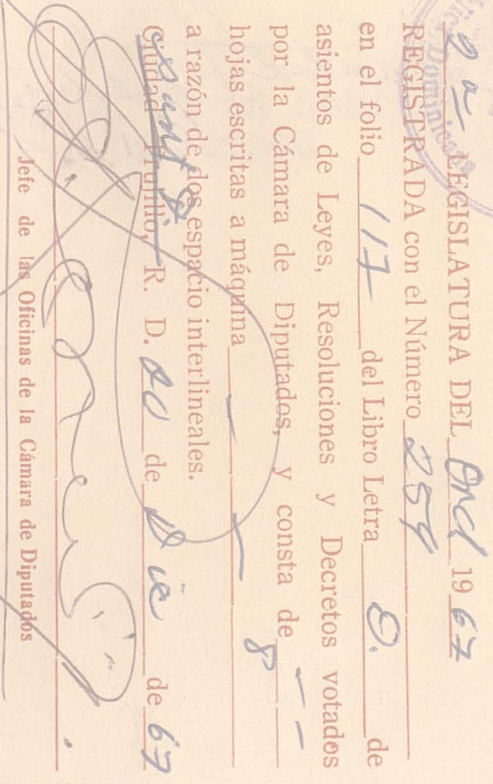 2a LEGISLATURA DEL Ord 1967
REGISTRADA con el Número 259
en el folio 117 del Libro Letra O. de
asientos de Leyes, Resoluciones y Decretos votados
por la Cámara de Diputados, y consta de 8
hojas escritas a máquina
a razón de dos espacio interlineales.
Ciudad Trujillo, R. D. 20 de Dic de 67
Jefe de las Oficinas de la Cámara de Diputados